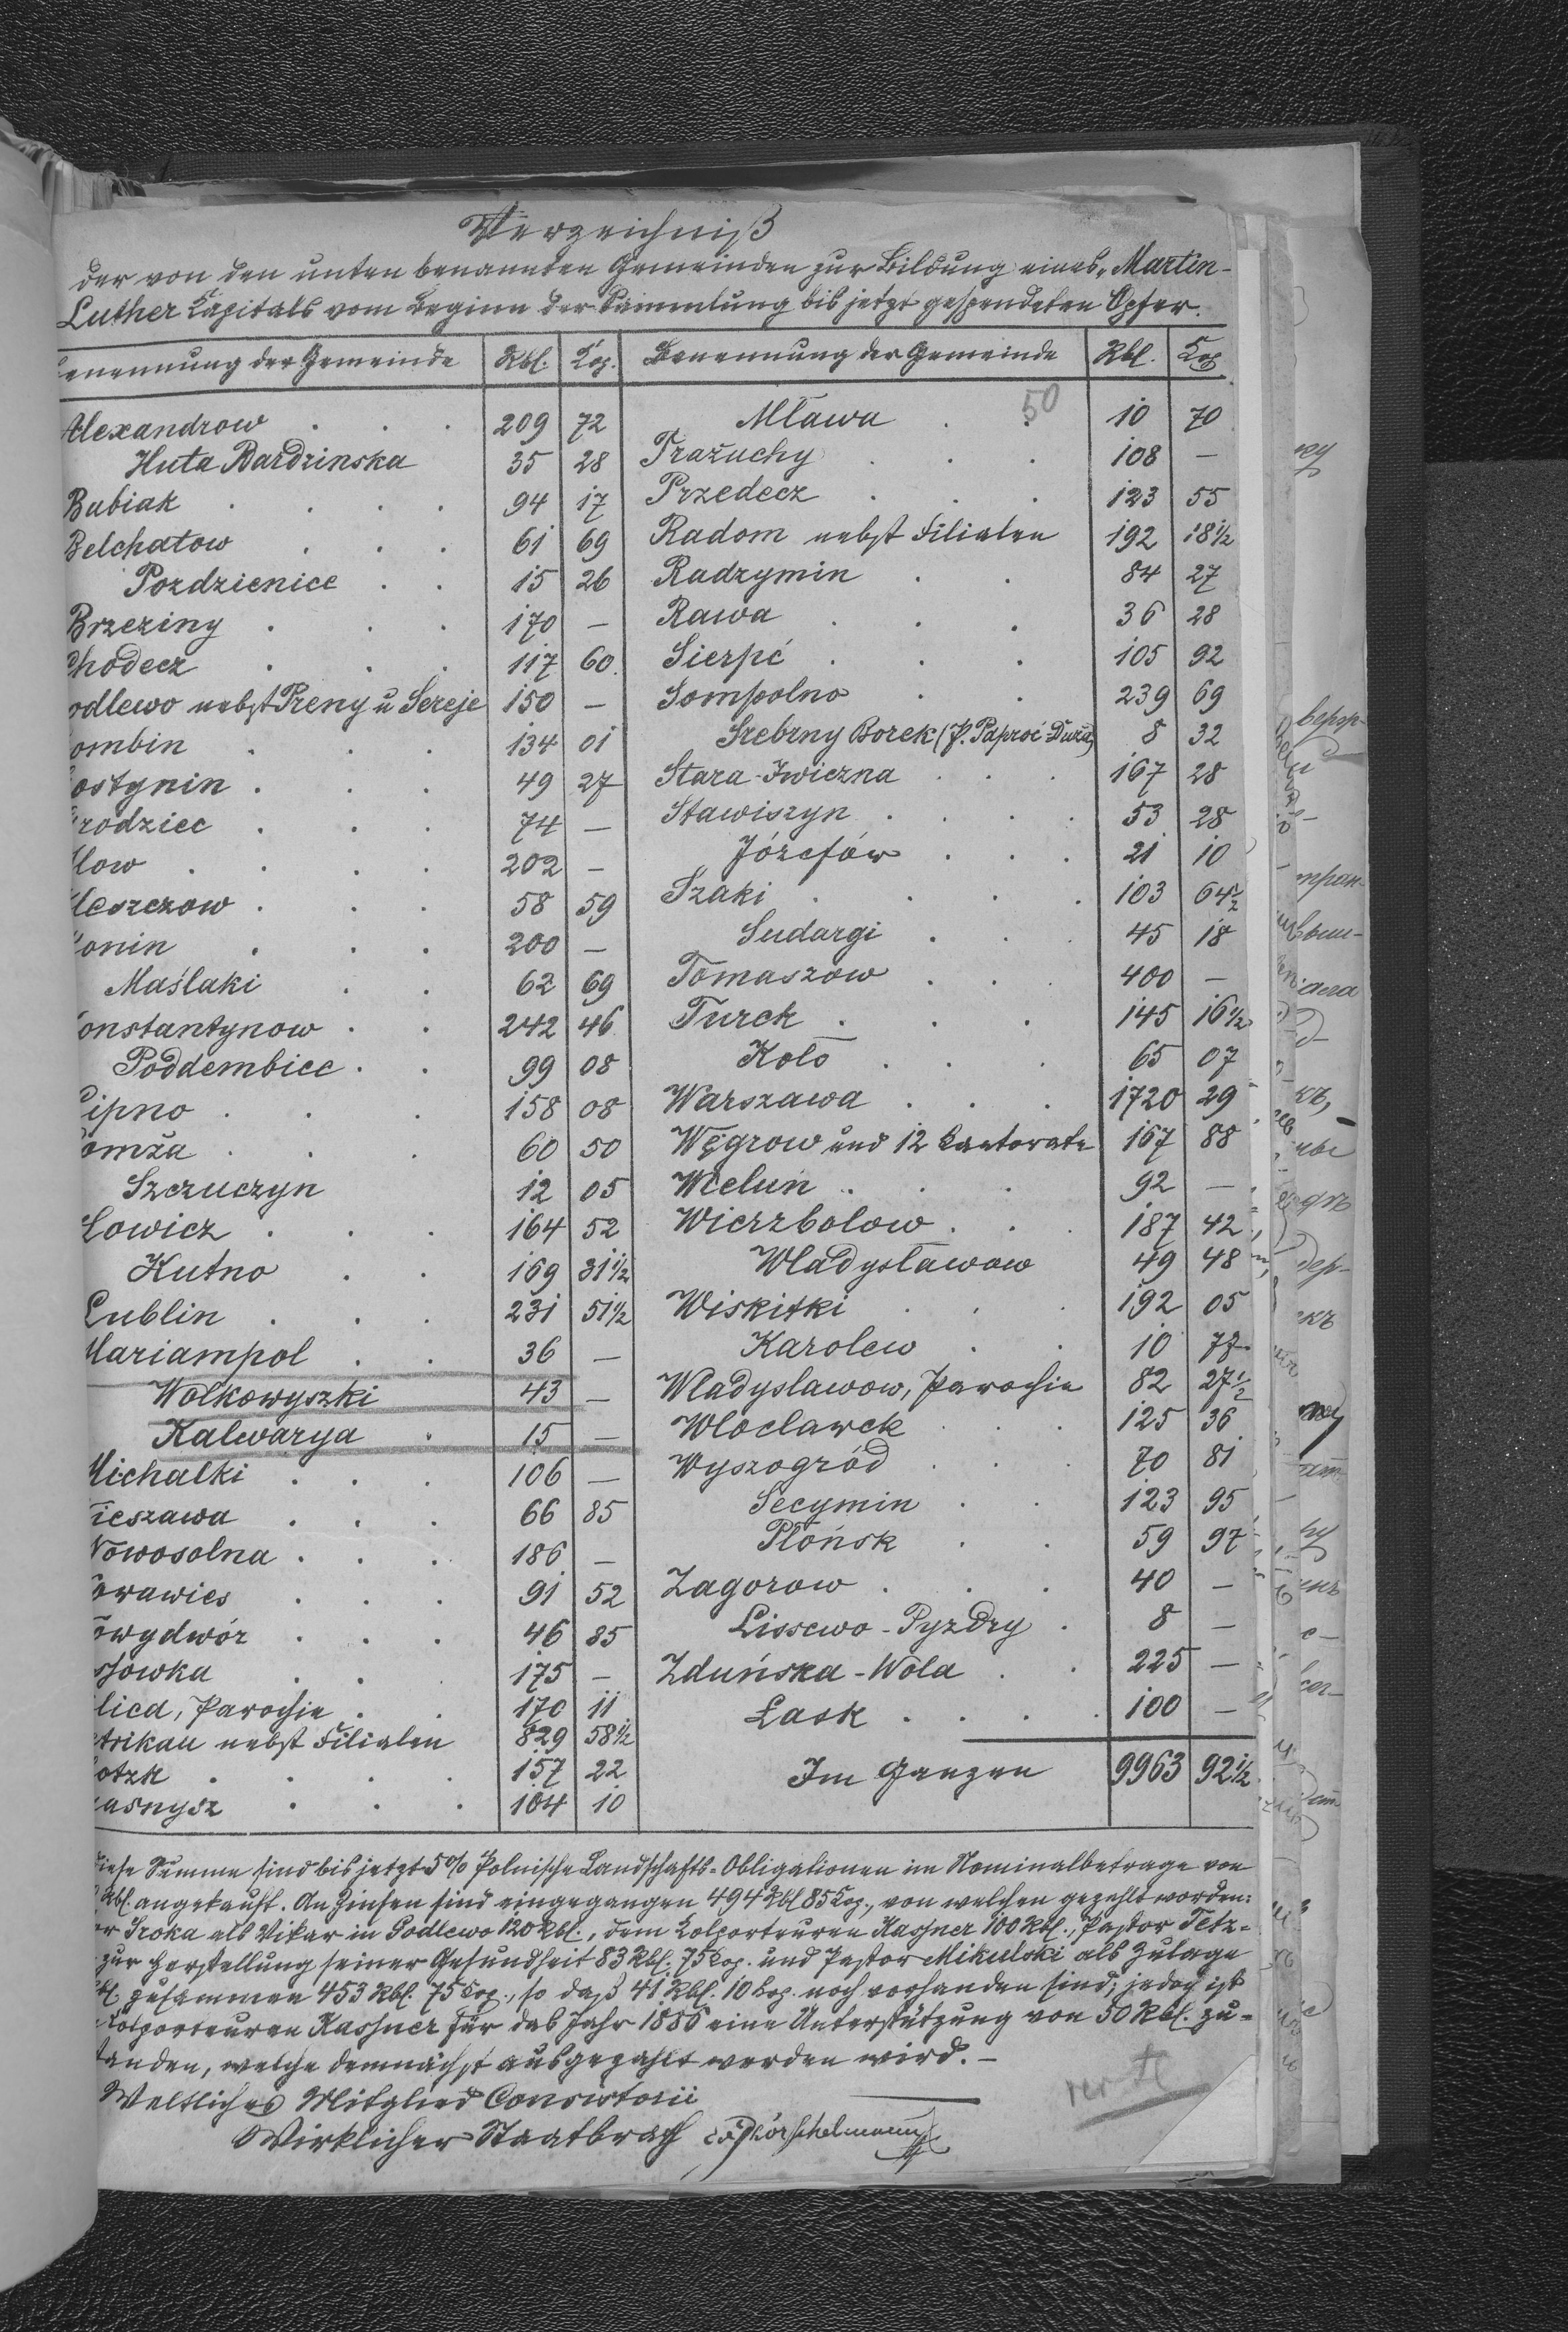 Verzeichniß
der von den unten benannten Gemeinden zur Bildung eines „Martin-
Luther Kapitals vom Beginn der Sammlung bis jetzt gespendeten Opfer.
enennung der Gemeinde Rbl. Kop. Benennung der Gemeinde Rbl. Kop
50
Alexandrow . . . 209 72 Mława . . 10 70
Huta Bardzinska 35 28 Prażuchy . . . 108 —
Babiak . . . . 94 17 Przedecz . . . 123 55
Belchatow . . . 61 69 Radom nebst Filialen 192 18½
Pozdzienice . . 15 26 Radzymin . . 84 27
Brzeziny . . . 170 — Rawa . . . 36 28
Chodecz . . . 117 60 Sierpć . . . 105 92
odlewo nebst Preny u Sereje 150 — Sompolno . . 239 69
ombin . . . 134 01 Srebrny Borek (P. Paproć Duża) 8 32
ostynin . . . 49 27 Stara-Iwiczna . . . 167 28
rodziec . . . 74 — Stawiszyn . . . . 53 28
łow . . . . 202 — Józefów . . . 21 10
leszczow . . . 58 59 Szaki . . . . 103 64½
onin . . . 200 — Sudargi . . . 45 18
Maślaki . . 62 69 Tomaszow . . . 400 —
onstantynow . . 242 46 Turek . . . 145 16½
Poddembice . . 99 08 Koło . . . 65 07
Lipno . . . 158 08 Warszawa . . . 1720 29
omża . . . 60 50 Węgrow und 12 Kantorate 167 88
Szczuczyn 12 05 Wieluń . . . 92 —
Łowicz . . . 164 52 Wierzbolow . . . 187 42
Kutno . . 169 31½ Władysławow 49 48
Lublin . . . 231 51½ Wiskitki . . . 192 05
Mariampol . . 36 — Karolew . . 10 77
Wolkowyszki 43 — Wladyslawow, Parochie 82 27½
Kalwarya . 15 — Wloclawek . . . 125 36
Michalki . . . 106 — Wyszogród . . . 70 81
ieszawa . . . 66 85 Secymin . . 123 95
Nowosolna . . . 186 — Płońsk . . 59 97
rawies . . . 91 52 Zagorow . . . 40 —
owydwór . . . 46 85 Lissewo-Pyzdry . 8 —
ówka . . 175 — Zduńska-Wola . . 225 —
ilica, Parochie . . 170 11 Łask . . . . 100 —
etrikau nebst Filialen 829 58½
otzk . . . . 157 22 Im Ganzen 9963 92½
asnysz . . . 104 10
diese Summe sind bis jetzt 5% Polnische Landschafts-Obligationen im Nominalbetrage von
Rbl. angekauft. An Zinsen sind eingegangen 494 Rbl 85 Kop., von welchen gezahlt worden:
Sroka als Vikar in Godlewo 120 Rbl., dem Kolporteuren Kassner 100 Rbl., Pastor Tetz-
zur Herstellung seiner Gesundheit 83 Rbl. 75 Kop. und Pastor Mikulski als Zulage
zusammen 453 Rbl. 75 Kop., so daß 41 Rbl. 10 Kop. noch vorhanden sind; jedoch ist
Kolporteuren Kassner für das Jahr 1886 eine Unterstützung von 50 Rbl. zu-
tanden, welche demnächst ausgezahlt werden wird. —
Weltliches Mitglied Consistorii
Wirklicher Staatsrath Hörschelmann